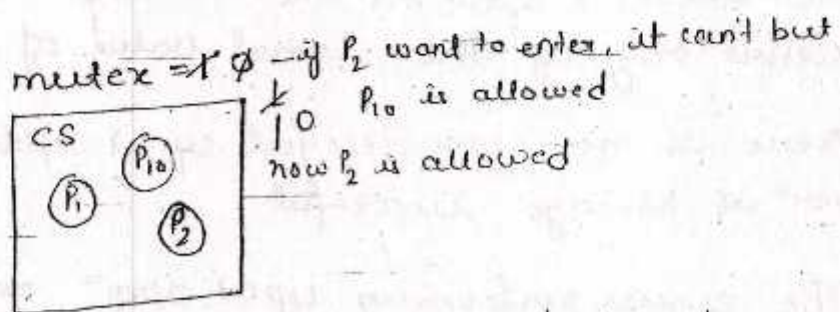 mutex = 1 0 - if P2 want to enter, it can't but
1 0 P10 is allowed
1
now P2 is allowed
CS
P10
P1
P2